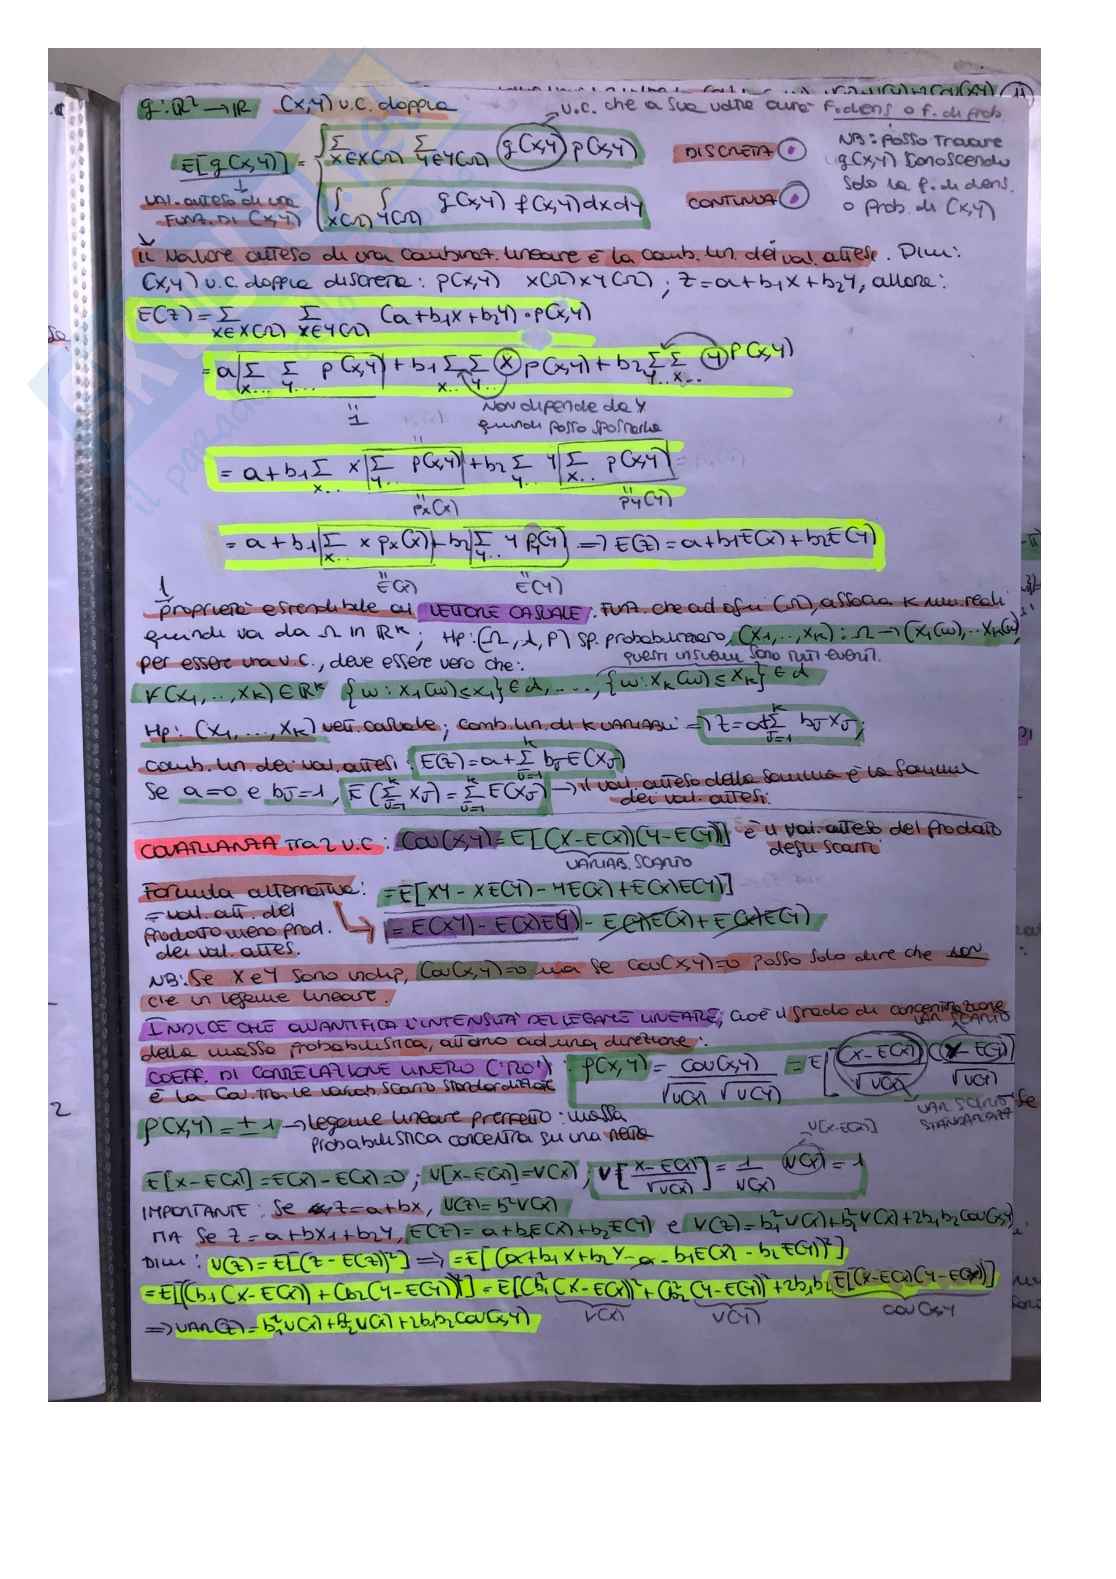 g: ℝ² → ℝ (X,Y) v.c. doppia → v.c. che a sua volta avrà F. dens o f. di prob.
E[g(X,Y)] = { Σ x∈X(Ω) Σ y∈Y(Ω) g(x,y) p(x,y) DISCRETA
∫ X(Ω) ∫ Y(Ω) g(x,y) f(x,y) dx dy CONTINUA
VAL. ATTESO DI UNA FUNZ. DI (X,Y)
NB: Posso Trovare
g(x,y) conoscendo
solo la f. di dens.
o prob. di (X,Y)
il valore atteso di una combinaz. lineare è la comb. lin. dei val. attesi. Dim:
(X,Y) v.c. doppia discreta: p(x,y) X(Ω)×Y(Ω); Z=a+b₁X+b₂Y, allora:
E(Z) = Σ x∈X(Ω) Σ y∈Y(Ω) (a+b₁x+b₂y)·p(x,y)
= a Σ x... Σ y... p(x,y) + b₁ Σ x.. Σ y.. x p(x,y) + b₂ Σ y.. Σ x... y p(x,y)
" 1
Non dipende da y
quindi posso spostarlo
= a + b₁ Σ x.. x Σ y... p(x,y) + b₂ Σ y.. y Σ x... p(x,y)
" pₓ(x) " pᵧ(y)
= a + b₁ Σ x.. x pₓ(x) + b₂ Σ y.. y pᵧ(y) ⇒ E(Z) = a+b₁E(X)+b₂E(Y)
" E(X) " E(Y)
proprietà estendibile al VETTORE CASUALE: Funz. che ad ogni (Ω), associa K num. reali
quindi va da Ω in ℝᴷ; Hp: (Ω, A, P) sp. probabilizzato, (X₁,...,Xₖ): Ω → (X₁(ω),...Xₖ(ω))
per essere una v.c., deve essere vero che: questi insiemi sono tutti eventi.
∀(x₁,...,xₖ)∈ℝᴷ {ω: X₁(ω)≤x₁}∈A,...,{ω: Xₖ(ω)≤xₖ}∈A
Hp: (X₁,...,Xₖ) vett. casuale; comb. lin. di K VARIABILI ⇒ Z=a+Σ j=1 K bⱼXⱼ;
comb. lin. dei val. attesi: E(Z)=a+Σ j=1 K bⱼE(Xⱼ)
Se a=0 e bⱼ=1, E(Σ j=1 K Xⱼ)=Σ j=1 K E(Xⱼ) → il val. atteso della somma è la somma
dei val. attesi.
COVARIANZA tra 2 v.c: Cov(X,Y)=E[(X-E(X))(Y-E(Y))] è il val. atteso del prodotto
degli scarti
VARIAB. SCARTO
Formula alternativa: =E[XY - XE(Y) - YE(X) + E(X)E(Y)]
= val. att. del
prodotto meno prod.
dei val. attes.
= E(XY) - E(X)E(Y) - E(Y)E(X) + E(X)E(Y)
NB: Se X e Y sono indip, Cov(X,Y)=0 ma se Cov(X,Y)=0 posso solo dire che non
c'è un legame lineare.
INDICE CHE QUANTIFICA L'INTENSITÀ DEL LEGAME LINEARE, cioè il grado di concentrazione
della massa probabilistica, attorno ad una direzione:
VAR. SCARTO
COEFF. DI CORRELAZIONE LINEARE ("RO"): ρ(X,Y) = Cov(X,Y) / √V(X) √V(Y) = E[ (X-E(X)) / √V(X) (Y-E(Y)) / √V(Y) ]
è la Cov. tra le variab. scarto standardizzate
VAR. SCARTO
STANDARDIZZ
Se
ρ(X,Y)=±1 → legame lineare perfetto: massa
probabilistica concentrata su una retta
V[X-E(X)]
E[X-E(X)]=E(X)-E(X)=0; V[X-E(X)]=V(X); V[(X-E(X)) / √V(X)] = 1/V(X) V(X) = 1
IMPORTANTE: Se Z=a+bX, V(Z)=b²V(X)
MA Se Z=a+bX₁+b₂Y, E(Z)=a+b₁E(X)+b₂E(Y) e V(Z)=b₁²V(X)+b₂²V(X)+2b₁b₂Cov(X,Y).
Dim: V(Z)=E[(Z-E(Z))²] ⇒ =E[(a+b₁X+b₂Y-a-b₁E(X)-b₂E(Y))²]
=E[(b₁(X-E(X))+(b₂(Y-E(Y))²]=E[(b₁²(X-E(X))²+(b₂²(Y-E(Y))²+2b₁b₂E[(X-E(X))(Y-E(Y))]
V(X) V(Y) Cov(X,Y)
⇒ VAR(Z)=b₁²V(X)+b₂²V(X)+2b₁b₂Cov(X,Y)